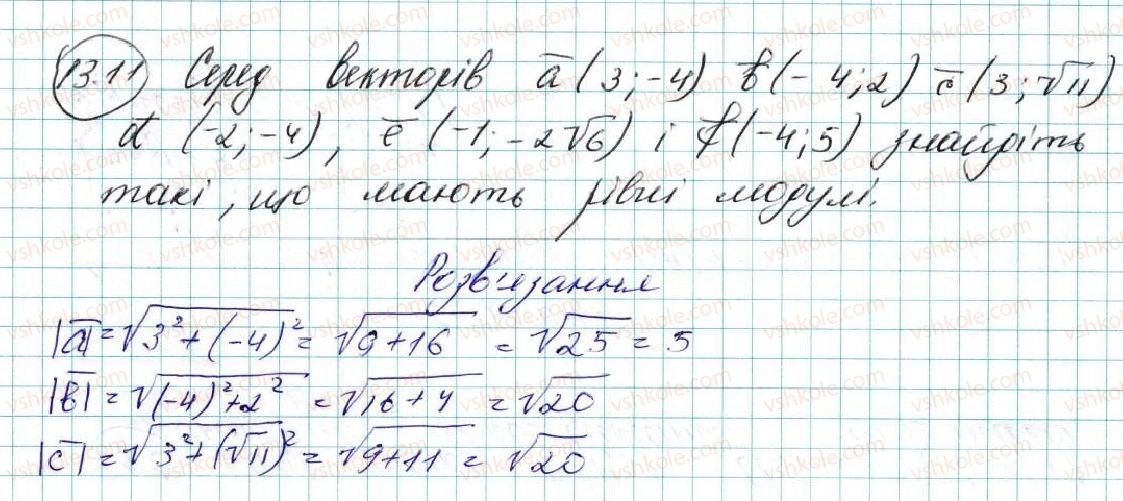 13.11 Серед векторів a̅(3;-4) b̅(-4;2) c̅(3;√11)
d̅ (-2;-4), e̅ (-1;-2√6) і f̅(-4;5) знайдіть
такі, що мають рівні модулі.
Розв'язання
|a̅|=√(3²+(-4)²)=√(9+16) = √25 = 5
|b̅| = √((-4)²+2²) = √(16+4) = √20
|c̅| = √(3²+(√11)²) = √(9+11) = √20